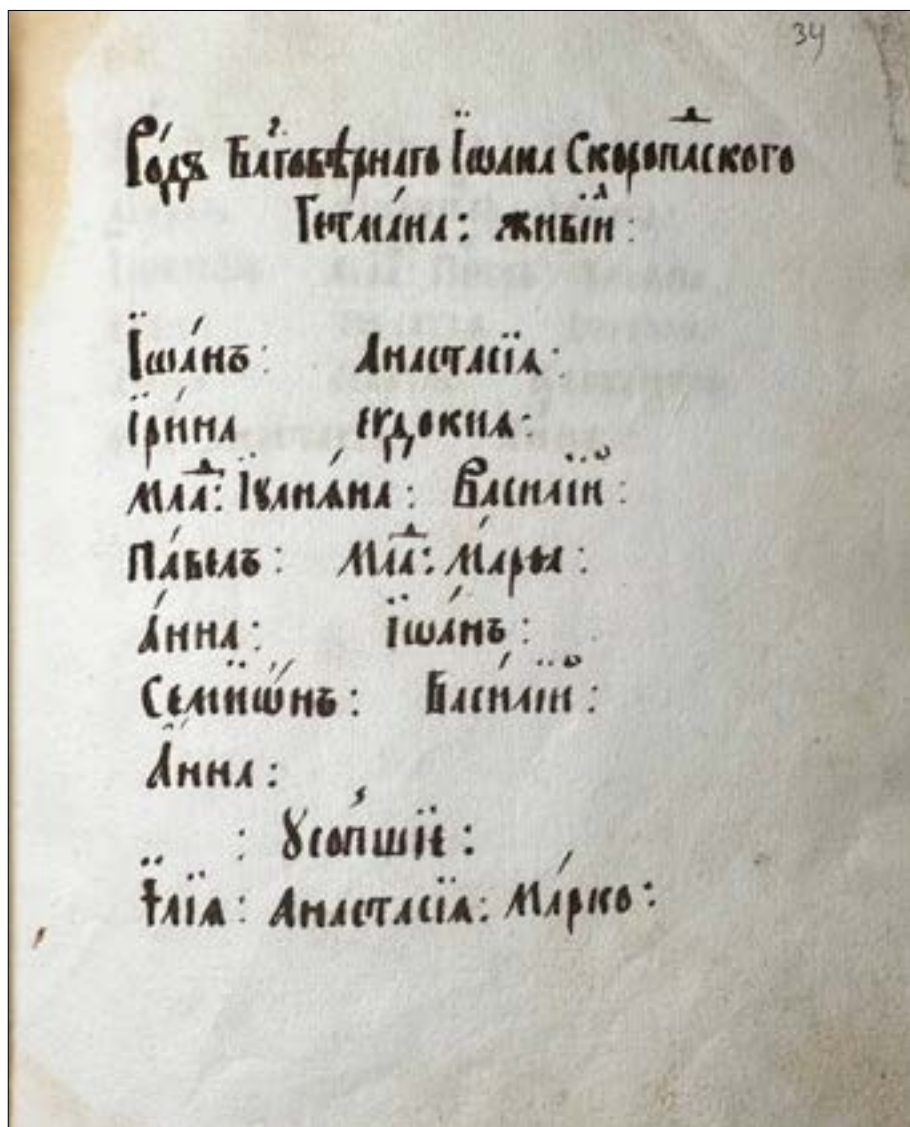 34
Ро́дъ Бл҃говѣрнаго Їѡана Скоропⷣаского
Гетма́на: живїиⷽ:
Їѡа́нъ: Анастасїѧ:
Їри́на Еѵдокиѧ:
Млⷣа: Їѹлиѧ́на: Васи́лїй:
Па́велъ: Млⷣа: Ма́рыѧ:
А́нна: Їѡа́нъ:
Семїѡ́нъ: Васи́лїй:
А́нна:
: Ꙋсо́пшїе:
Їлїѧ: Анастасїѧ: Ма́рко: